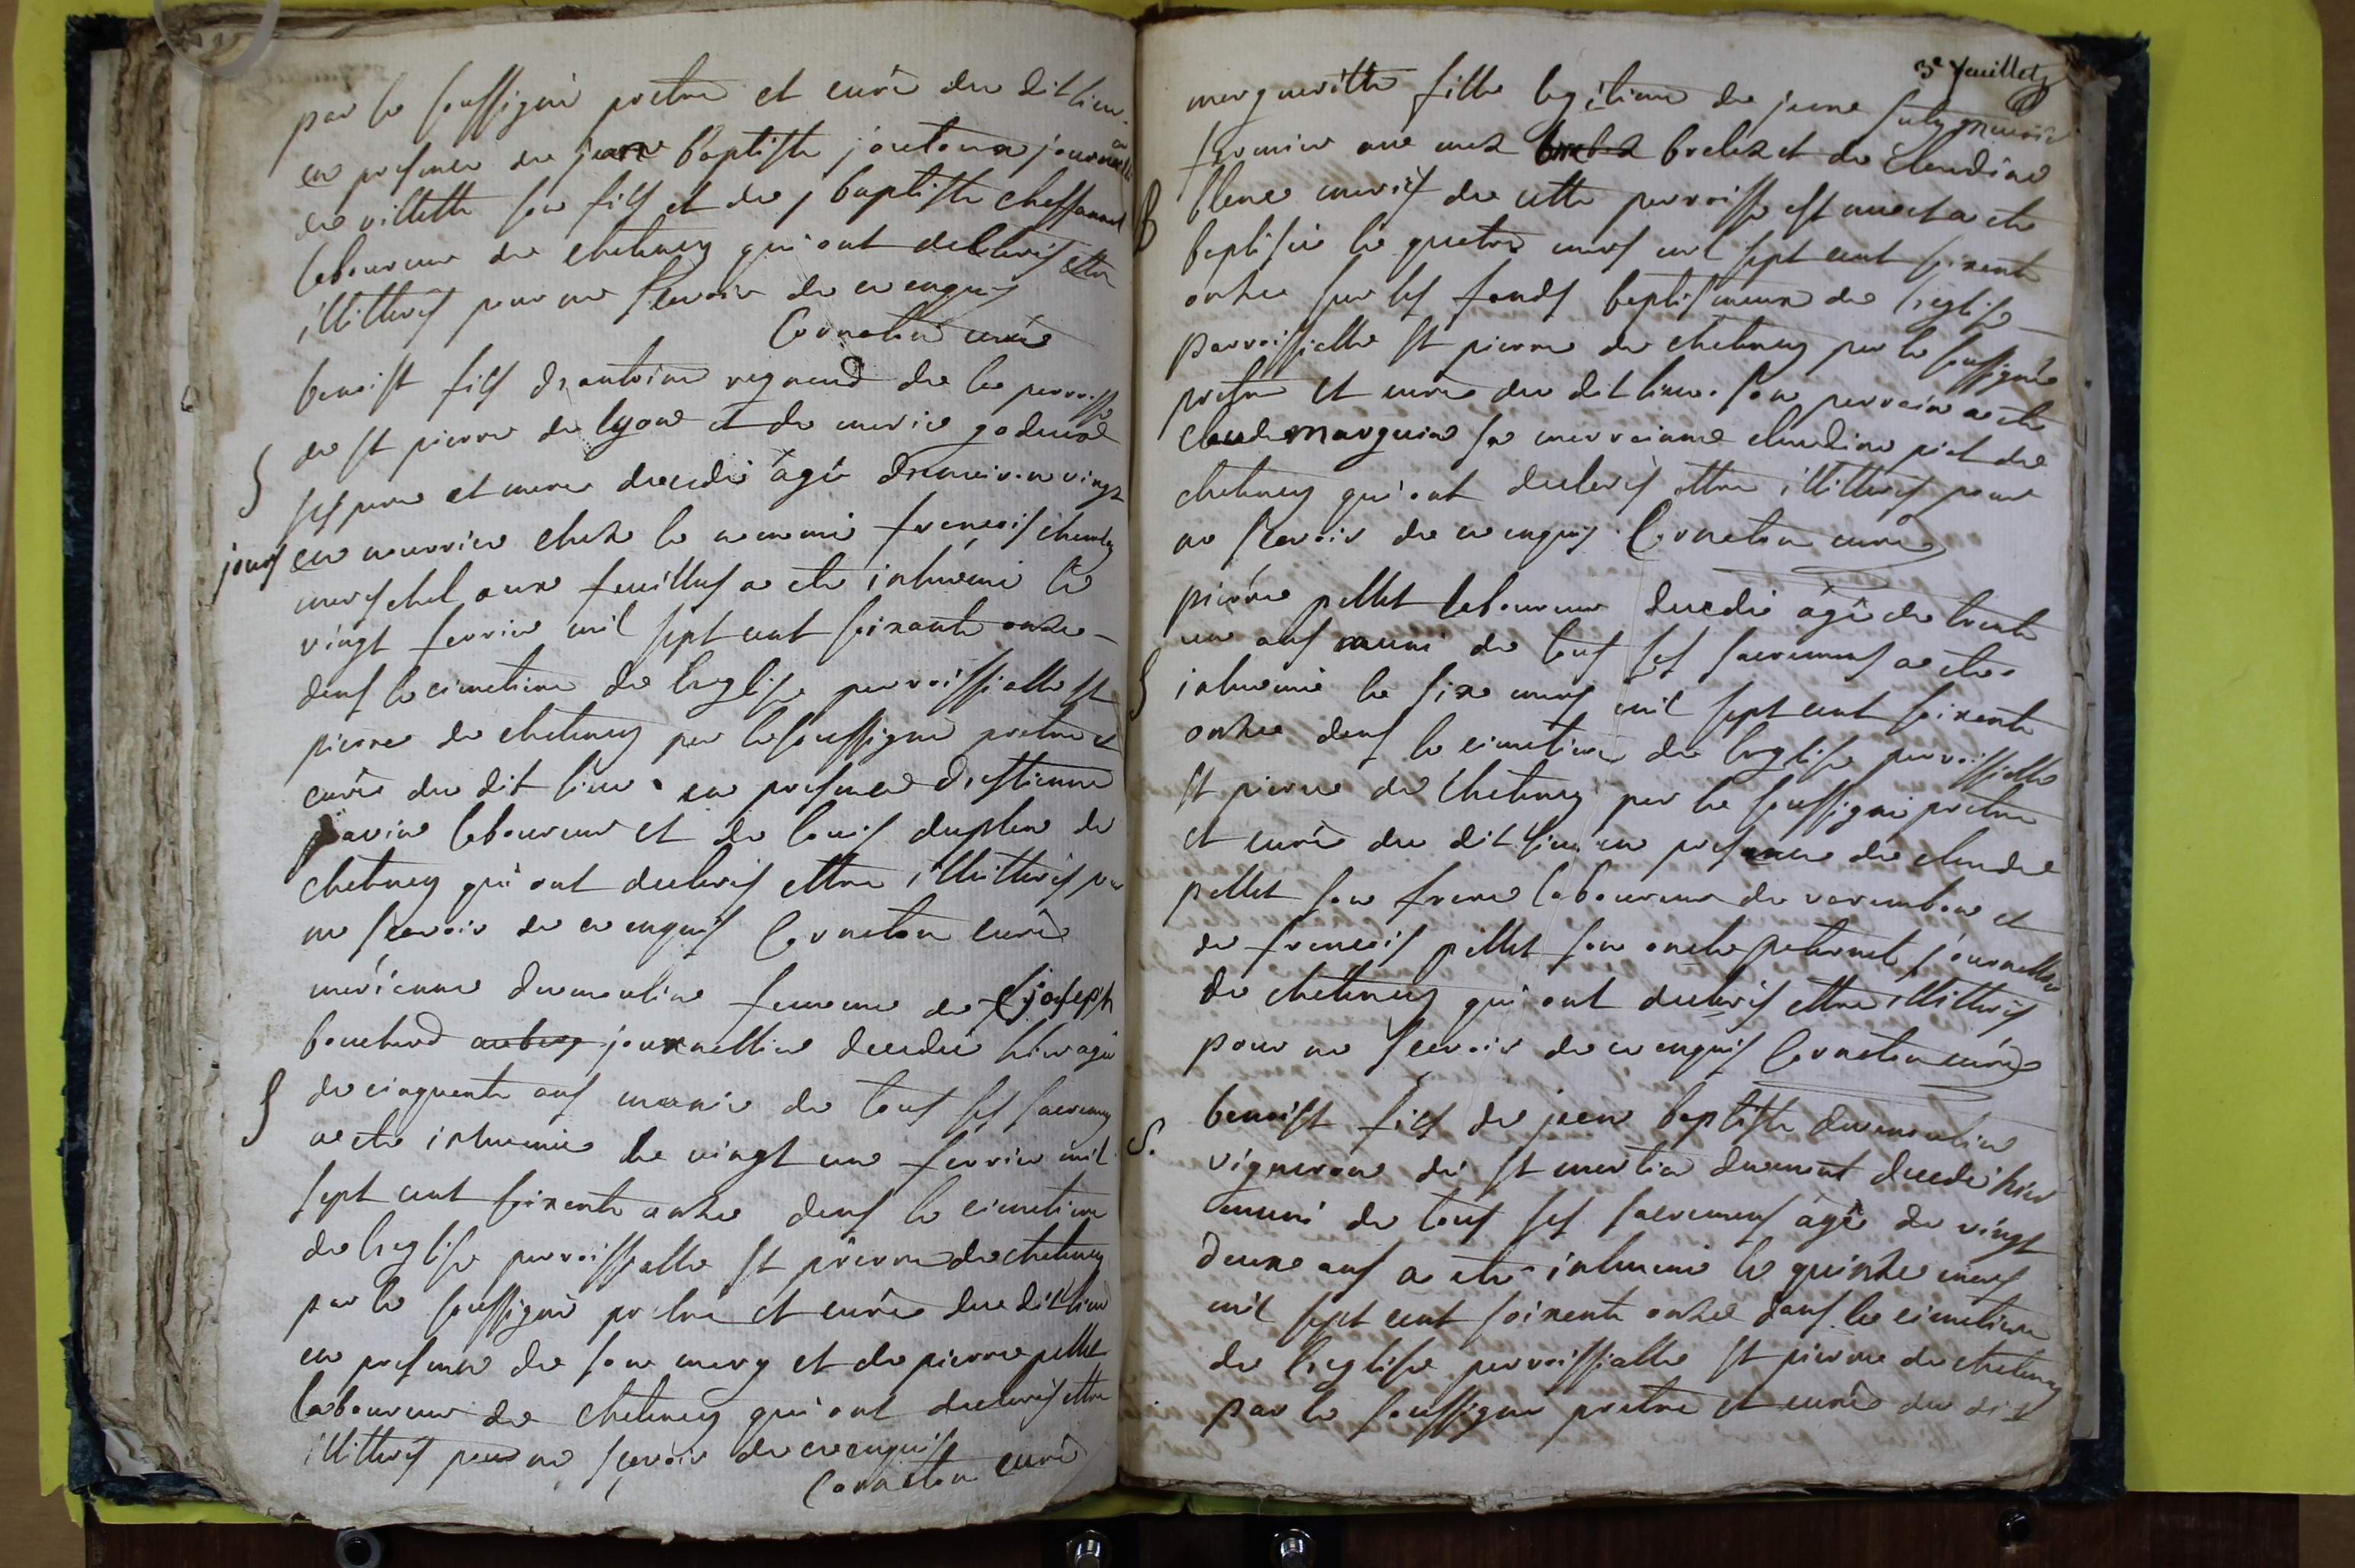 par le soussigné pretre et curé du dit lieu.
en presence de jean Baptiste joutoux journallie
de villette son fils et de j baptiste chessanant
laboureur de chetenay qui ont declarés ettre
illitterés pour ne scavoir de ce enquis
Cornaton curé
benoist fils d'antoine regnaud de la parroisse
de st pierre de lyon et de marie
ses pere et mere decedé agé d'environ vingt
jours en nourrice chez le nommé francois
mareschal aux feuilles a ete inhumé le
vingt fevrie mil sept cent soixante onze
dans le cimetiere de l'eglise parroissialle st
pierre de chetenay par le soussigné pretre et
curé du dit lieu. en presence d'estienne
pavin laboureur et de louis duplan de
chetenay qui ont declarés ettre illitterés pour
ne scavoir de ce enquis Cornaton curé
marianne dumoulin femme de joseph
bouchard journallier decedée hier agée
S de cinquante ans munie de tous ses sacremens
a ete inhumée le vingt un fevrie mil
sept cent soixante onze dans le cimetiere
de l'eglise parroissialle st pierre de chetenay
par le soussigné pretre et curé du dit lieu
en presence de son mary et de pierre pellet
laboureur de chetenay qui ont declarés ettre
illitterés pour ne scavoir de ce enquis
Cornaton curé
3e feuillet
margueritte fille legitime de jeane
fermier aux brebez et de Claudine
B blanc mariés de cette parroisse est née et a ete
baptisée le quatre mars mil sept cent soixante
onze sur les fonds baptismaux de l'eglise
parroissialle st pierre de chetenay par le soussigné
pretre et curé du dit lieu. son parrein a ete
claude marguin sa marreinne claudine piet de
chetenay qui ont declarés ettre illitterés pour
ne scavoir de ce enquis. Cornaton curé
pierre pellet laboureur decedé agé de trente
un ans muni de tous ses sacremens a ete
S inhumé le six mars mil sept cent soixante
onze dans le cimetiere de l'eglise parroissialle
st pierre de chetenay par le soussigné pretre
et curé du dit lieu en presence de claude
pellet son frere laboureur de varambon et
de francois pellet son oncle paternel journallier
de chetenay qui ont declarés ettre illitterés
pour ne scavoir de ce enquis Cornaton curé
S. benoist fils de jean baptiste dumoulin
vigneron de st martin dumont decedé hier
muni de tous ses sacremens agé de vingt
deux ans a ete inhumé le quinze mars
mil sept cent soixante onze dans le cimetiere
de l'eglise parroissialle st pierre de chetenay
par le soussigné pretre et curé du dit